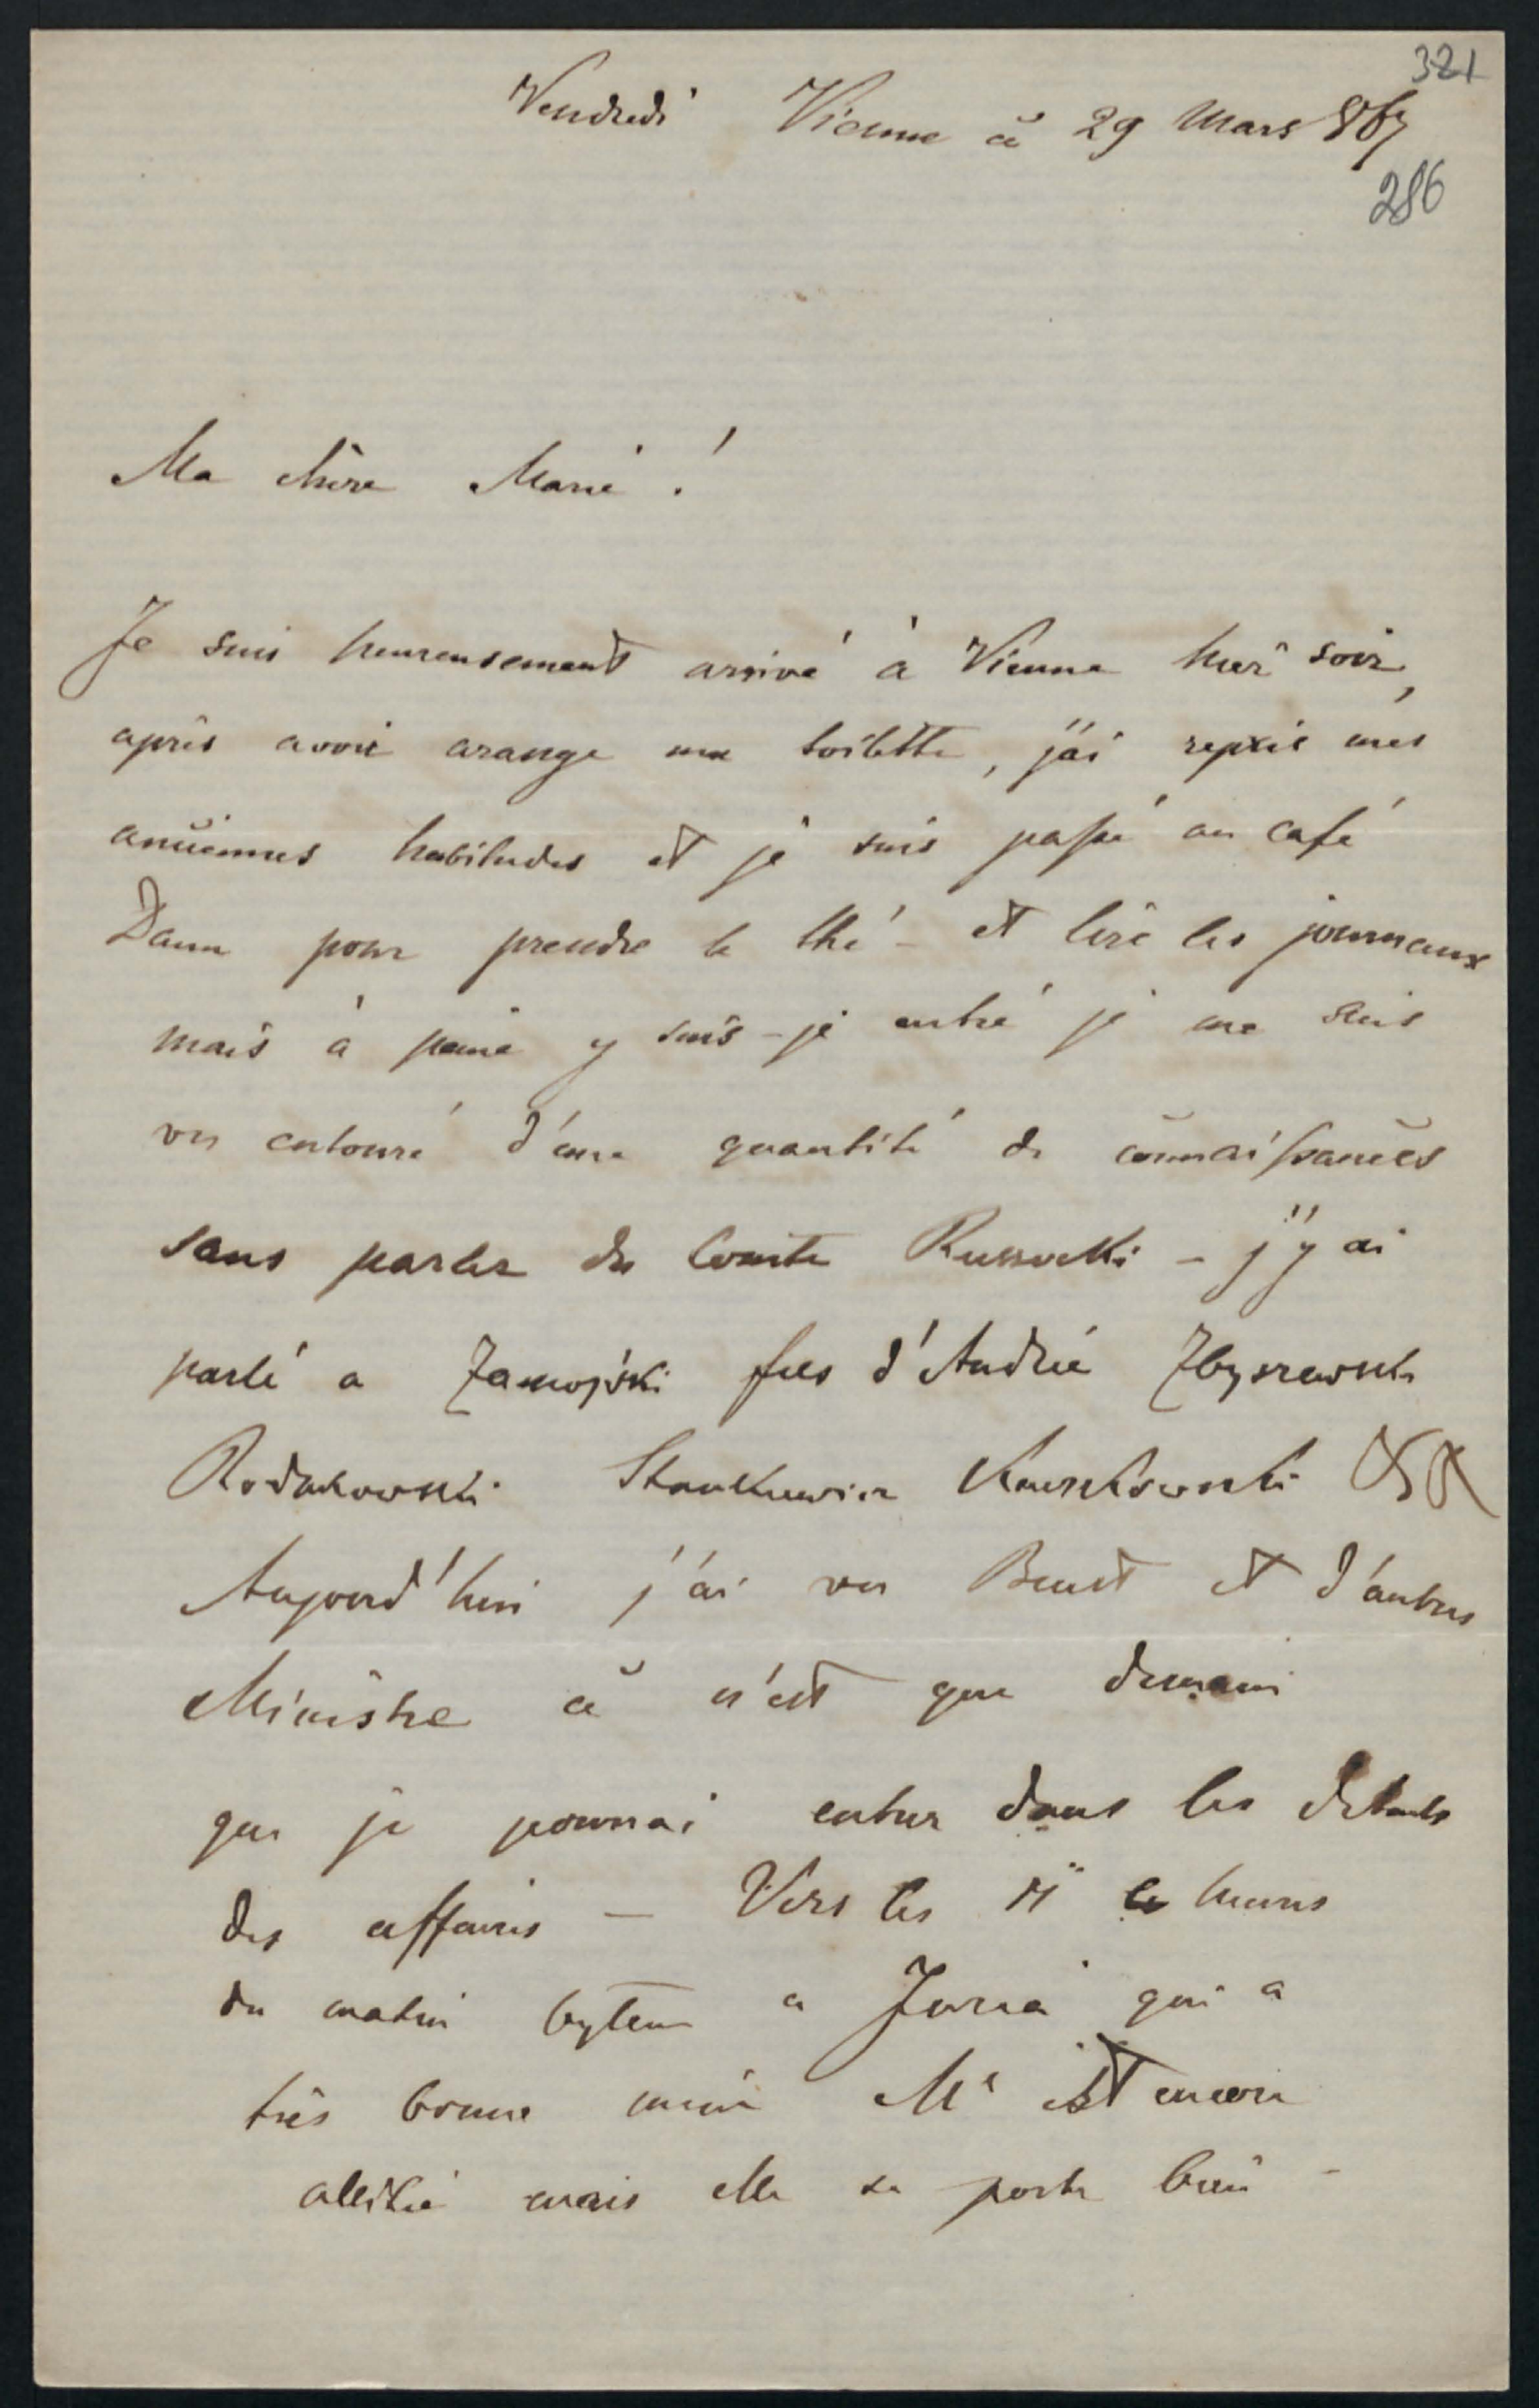 321
Vendredi Vienne ce 29 Mars 867
286
Ma chère Marie !
Je suis heureusement arrivé à Vienne hier soir,
après avoir arange ma toilette, j'ai repris mes
anciennes habitudes et je suis passé au café
Daum pour prendre le thé – et lire les journaux
mais à peine y suis-je entré je me suis
vu entouré d'une quantité de connaissances
sans parler du Comte Russocki – j'y ai
parlé a Zamojski fils d'André Zbyszewski
Rodakowski Stankiewicz
Aujourd'hui j'ai vu Beust et d'autres
Ministre ce n'est que demain
que je pourrai entrer dans les details
des affaires – Vers les 11 heures
du matin bytem a Juria qui a
très bonne mine Me est encore
alitée mais elle se porte bien –